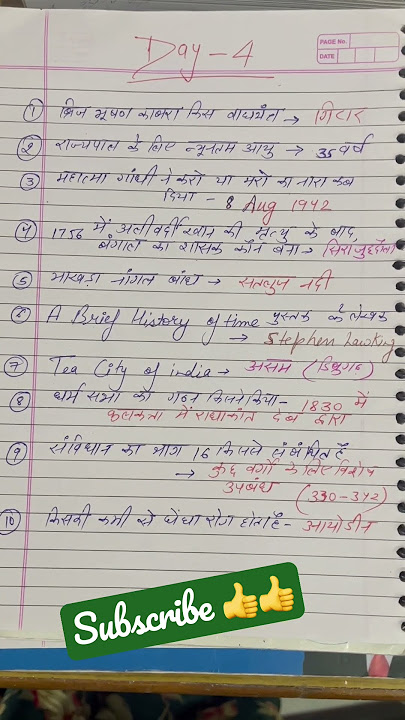 Day - 4
PAGE No.
DATE
① ब्रिज भूषण काबरा किस वाद्ययंत्र → गिटार
② राज्यपाल के लिए न्यूनतम आयु → 35 वर्ष
③ महात्मा गांधी ने करो या मरो का नारा कब
दिया - 8 Aug 1942
④ 1756 में अलीवर्दी खान की मृत्यु के बाद,
बंगाल का शासक कौन बना → सिराजुद्दौला
⑤ भाखड़ा नांगल बांध → सतलुज नदी
⑥ A Brief History of time पुस्तक के लेखक
→ Stephen Hawking
⑦ Tea City of india → असम (डिब्रुगढ)
⑧ धर्म सभा का गठन किसने किया - 1830 में
कलकता में राधाकांत देब द्वारा
⑨ संविधान का भाग 16 किससे संबंधित है
→ कुछ वर्गों के लिए विशेष
उपबंध (330-342)
⑩ किसकी कमी से घेंघा रोग होता है - आयोडीन
Subscribe 👍👍